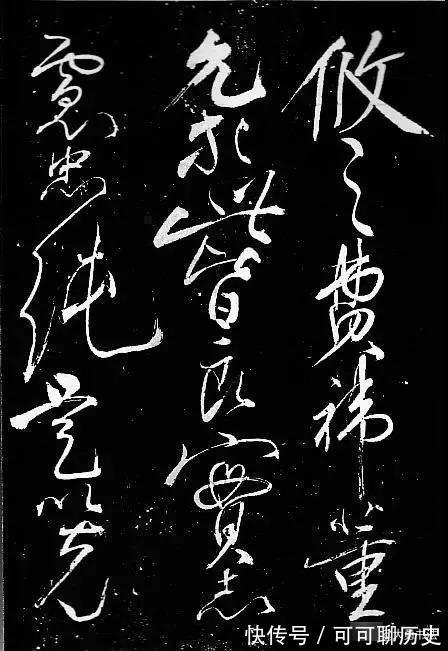 攸之費禕董
允等此皆良實志
慮忠純是以先
快传号 / 可可聊历史